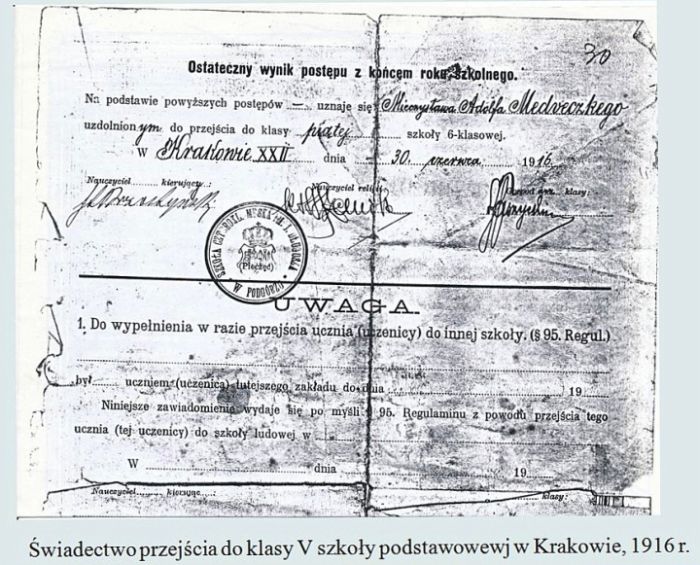 30
Ostateczny wynik postępu z końcem roku szkolnego.
Na podstawie powyższych postępów — uznaje się Mieczysława Adolfa Medveczkego
uzdolnionym do przejścia do klasy piątej szkoły 6-klasowej.
W Krakowie XXII dnia 30. czerwca 1916.
Nauczyciel kierujący: Nauczyciel religii: klasy:
W PODGÓRZU
(Pieczęć)
UWAGA.
1. Do wypełnienia w razie przejścia ucznia (uczenicy) do innej szkoły. (§ 95. Regul.)
był uczniem (uczenicą) tutejszego zakładu do dnia 19
Niniejsze zawiadomienie wydaje się po myśli § 95. Regulaminu z powodu przejścia tego
ucznia (tej uczenicy) do szkoły ludowej w
W dnia 19
Nauczyciel kierując klasy:
Świadectwo przejścia do klasy V szkoły podstawowewj w Krakowie, 1916 r.